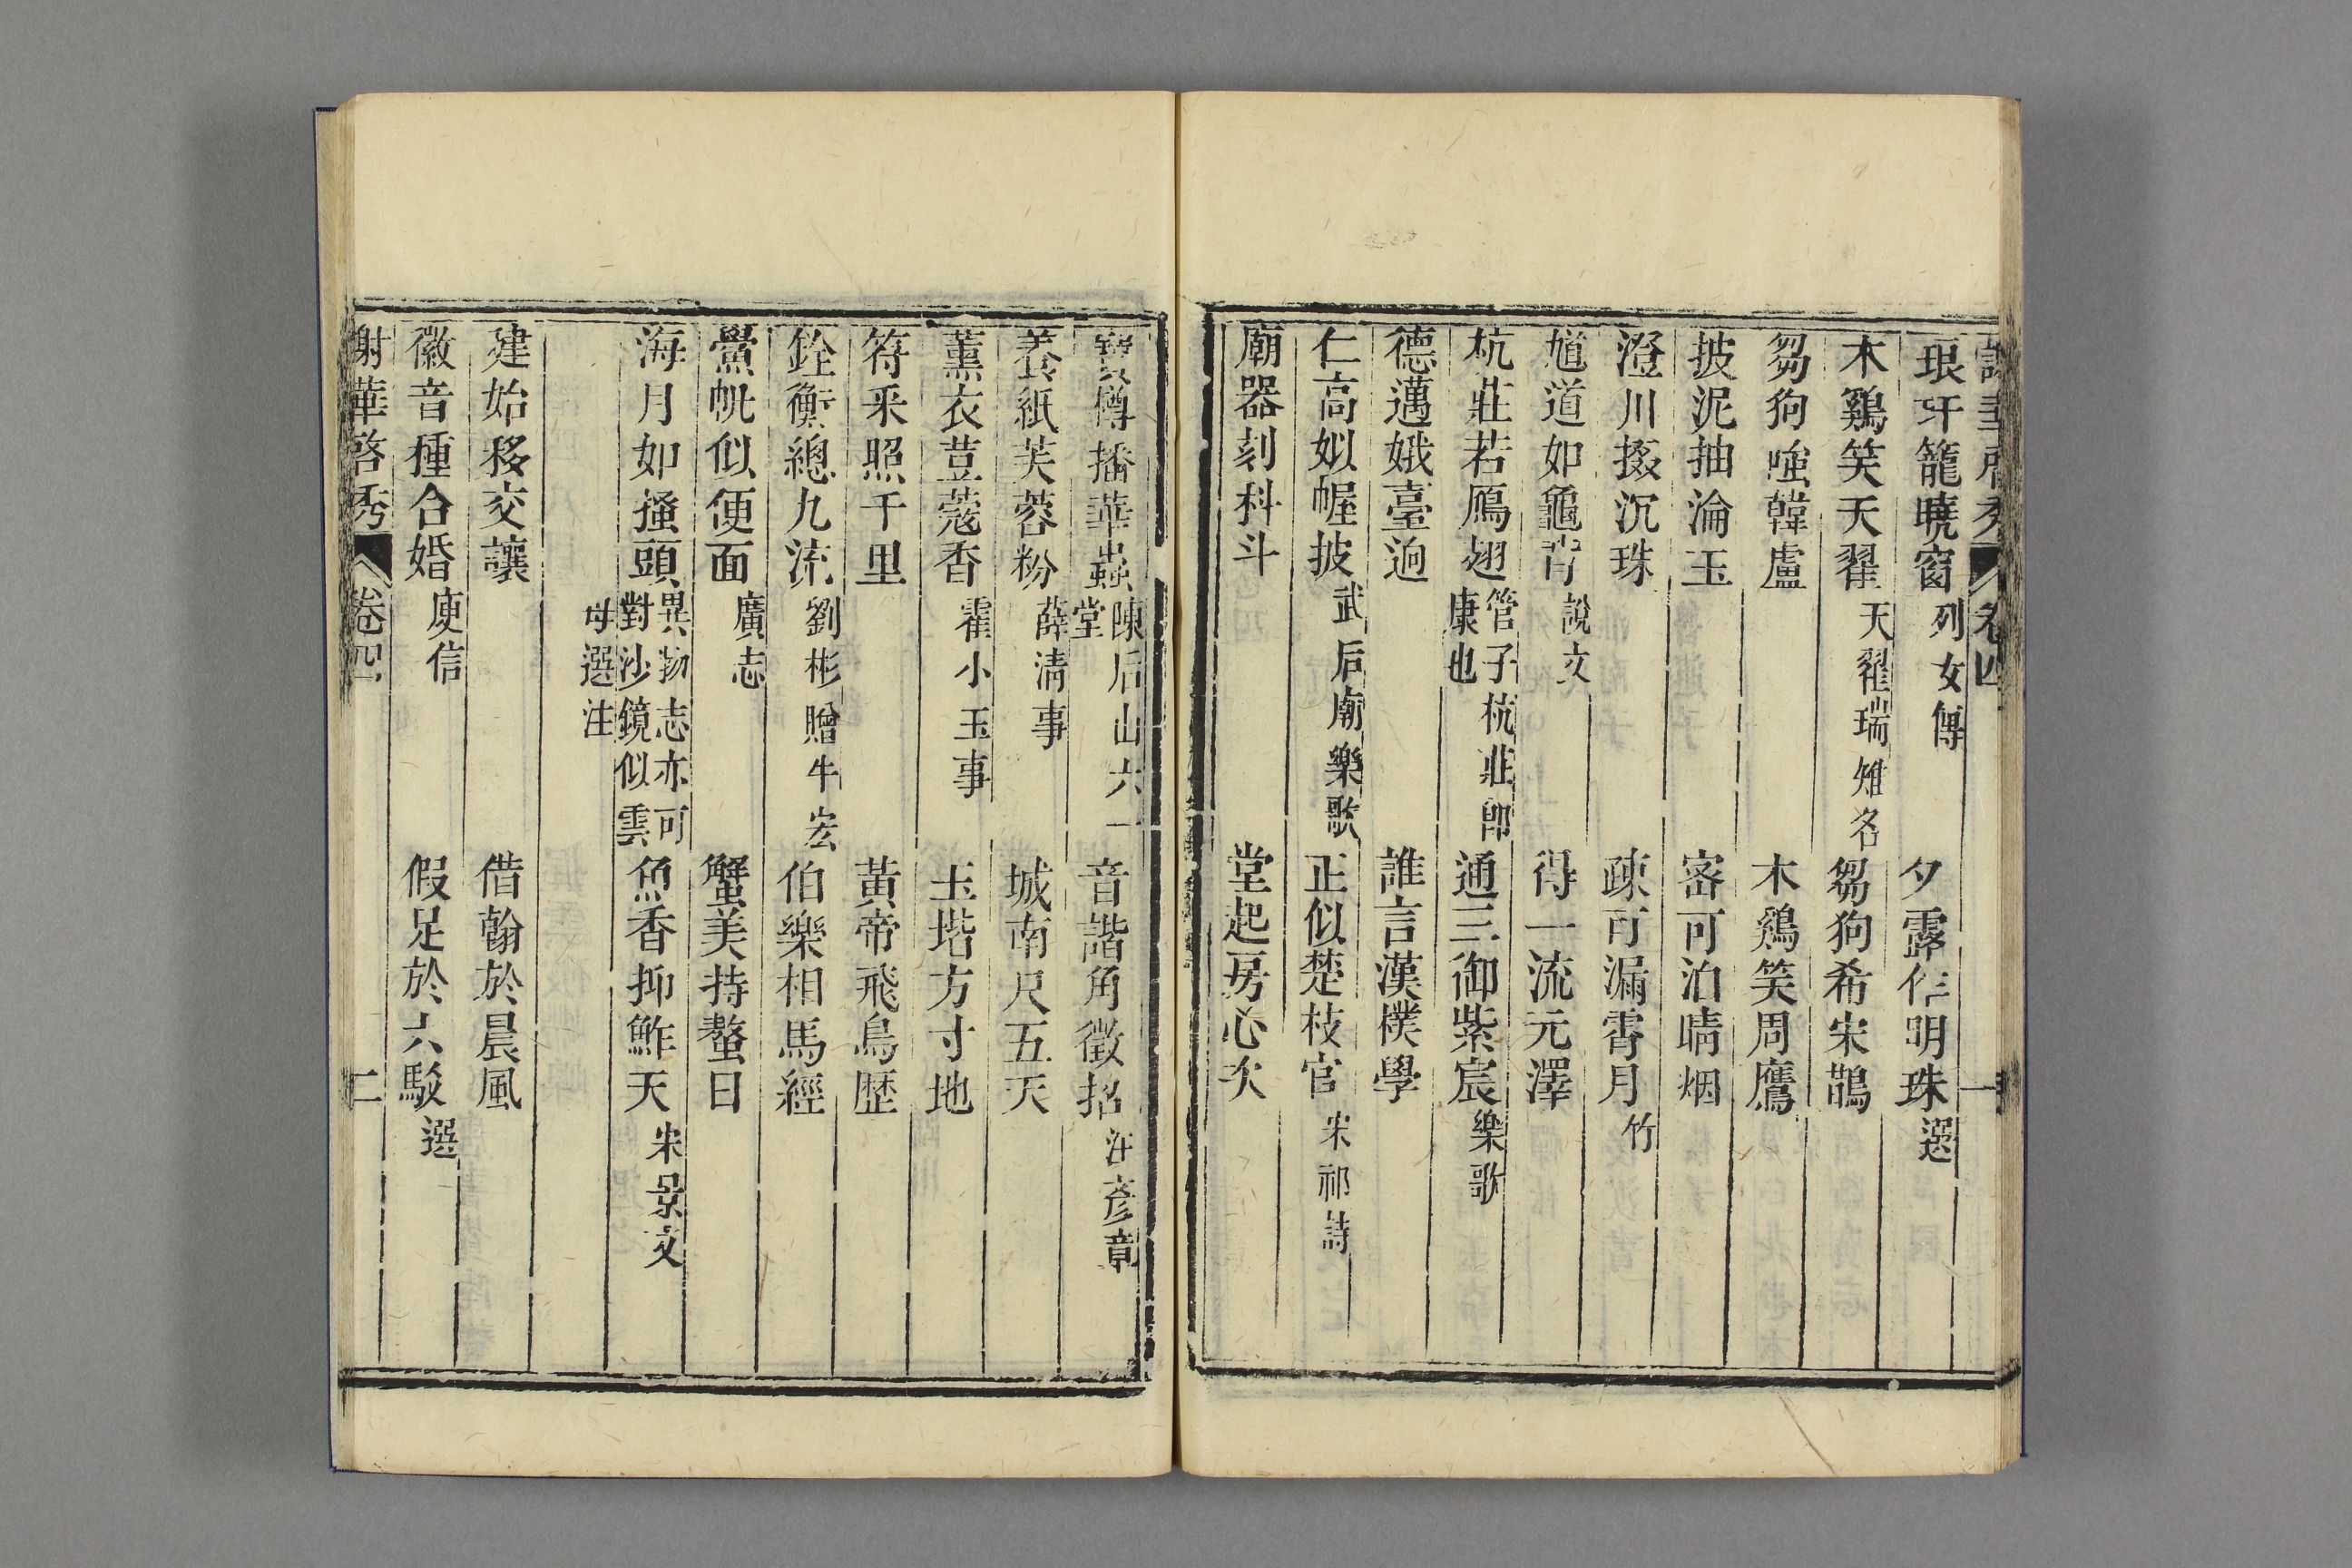 琅玕籠曉窗列女傳　夕露作明珠選
木鷄笑天翟天翟瑞雉名　芻狗希宋鵲
芻狗嗤韓盧　木鷄笑周鷹
披泥抽淪玉　密可泊晴烟
澄川掇沉珠　疎可漏霄月竹
馗道如龜背說文　得一流元澤
杭莊若鴈翅管子杭莊即康也　通三御紫宸樂歌
德邁娥臺逈　誰言漢樸學
仁高姒幄披武后廟樂歌　正似楚枝官宋祁詩
廟器刻科斗　堂起房心次
寶樽播華蟲陳后山六一堂　音諧角徵招汪彥章
養紙芙蓉粉薛淸事　城南尺五天
薰衣荳蔻香霍小玉事　玉堦方寸地
符釆照千里　黃帝飛鳥歴
銓衡總九流劉彬贈牛宏　伯樂相馬經
鱟帆似便面廣志　蟹美持螯日
海月如搔頭異物志亦可對沙鏡似雲母選注　魚香抑鮓天宋景文
建始移交讓　借翰於晨風
徽音種合婚庾信　假足於六駁選
謝華啓秀　卷四　二